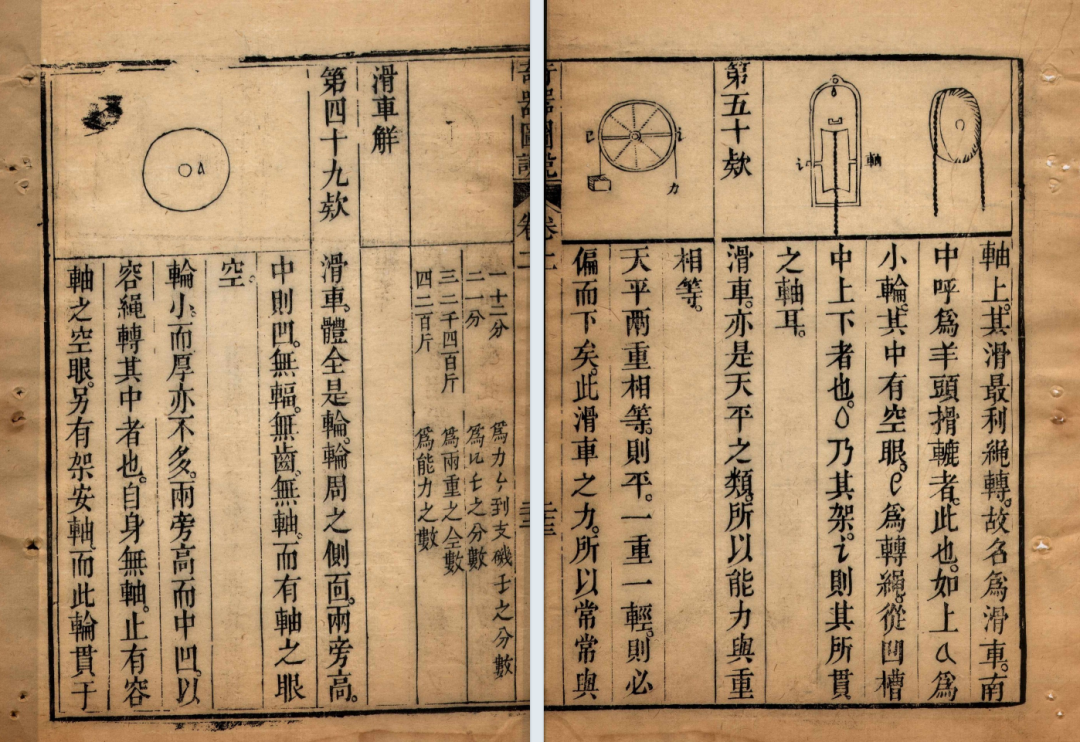 一十二分 爲力厶到支磯壬之分數
二一分 爲匕壬之分數
三二千四百斤 爲兩重之仝數
四二百斤 爲能力之數
滑車解
第四十九欵
滑車。體全是輪。輪周之側面。兩旁高。
中則凹。無輻。無齒。無軸。而有軸之眼
空。
輪小。而厚亦不多。兩旁高而中凹。以
容繩轉其中者也。自身無軸。止有容
軸之空眼。另有架安軸。而此輪貫于
奇器圖說 卷二
軸上。其滑最利繩轉。故名爲滑車。南
中呼爲羊頭搰轆者。此也。如上a爲
小輪。其中有空眼。e爲轉繩。從凹槽
中上下者也。o乃其架。i則其所貫
之軸耳。
軸
i
第五十欵
滑車。亦是天平之類。所以能力與重
相等。
天平兩重相等。則平。一重一輕。則必
偏而下矣。此滑車之力。所以常常與
i
力